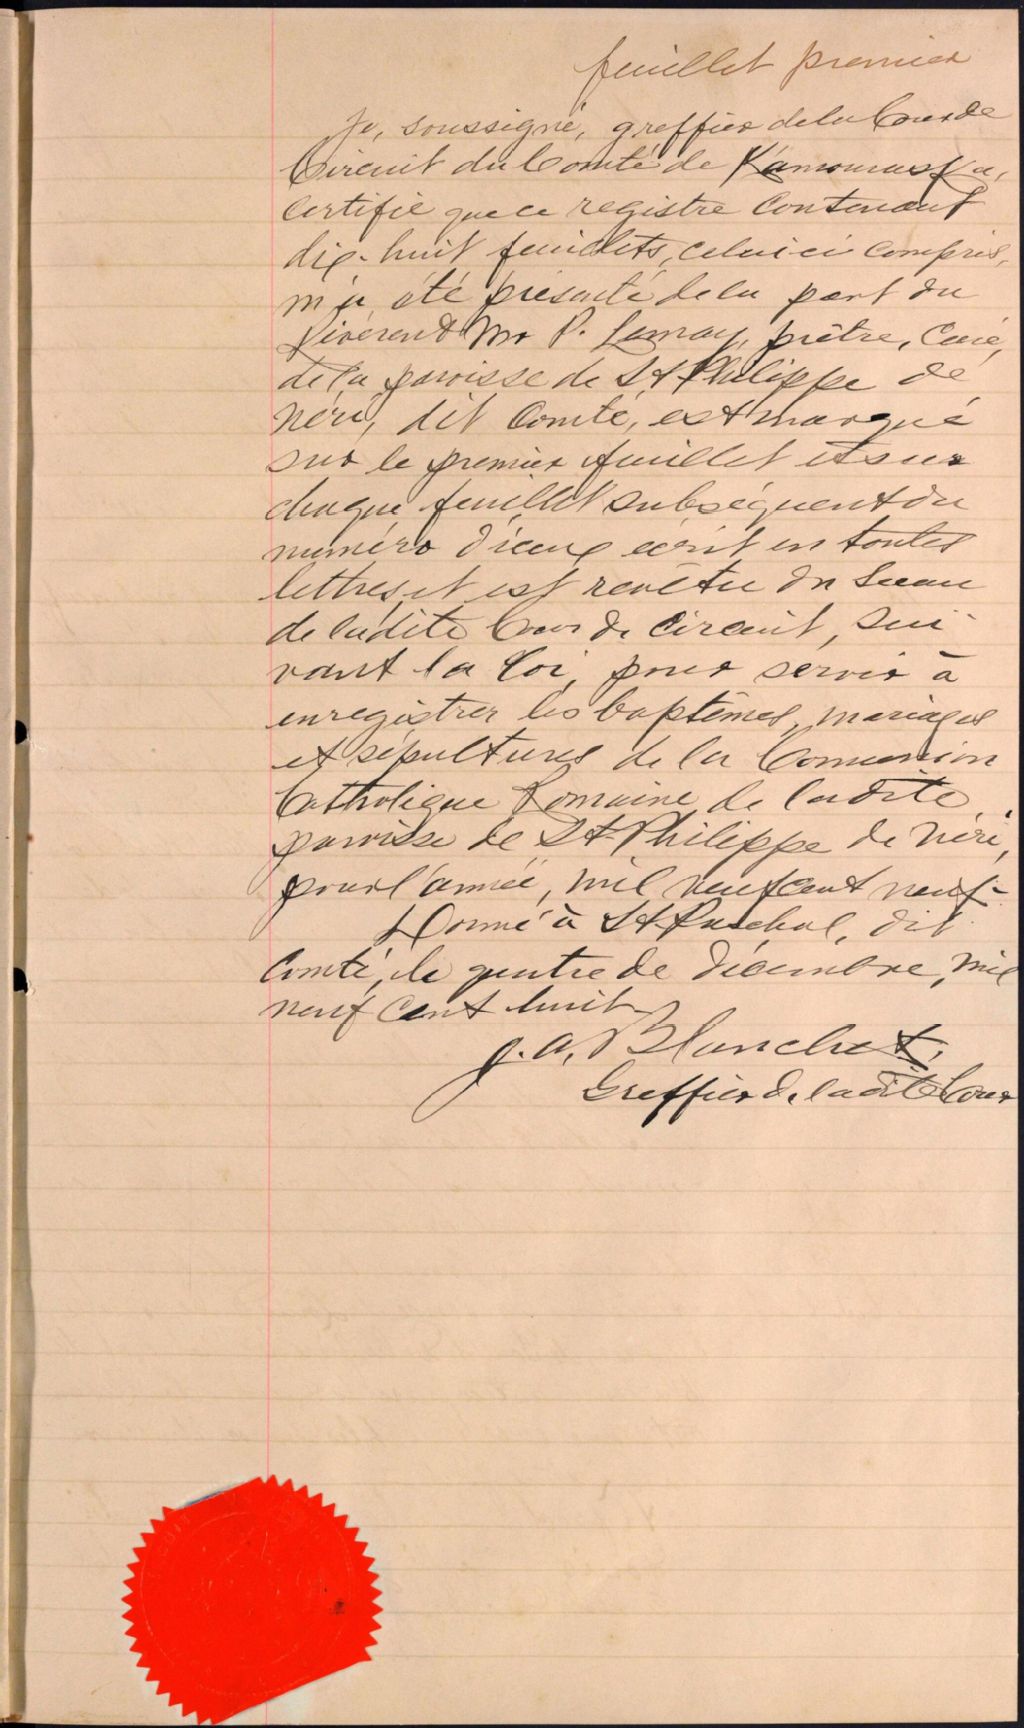 feuillet premier
Je, soussigné, greffier de la Cour de
Circuit du Comté de Kamouraska,
certifie que ce registre contenant
dix-huit feuillets, celui ci compris,
m'a été présenté de la part du
Révérend Mr P. Lemay, prêtre, Curé,
de la paroisse de St Philippe de
Néri, dit Comté, est marqué
sur le premier feuillet et sur
chaque feuillet subséquent du
numéro d'iceux écrit en toutes
lettres, et est revêtu du Sceau
de ladite Cour de Circuit, sui
vant la Loi, pour servir à
enregistrer les baptêmes, mariages
et sépultures de la Communion
Catholique Romaine de ladite
paroisse de St Philippe de Néri,
pour l'année, mil neuf cent neuf.
Donné à St Paschal, dit
Comté, le quatre de décembre, mil
neuf cent huit
J. A. Blanchet,
Greffier de ladite Cour